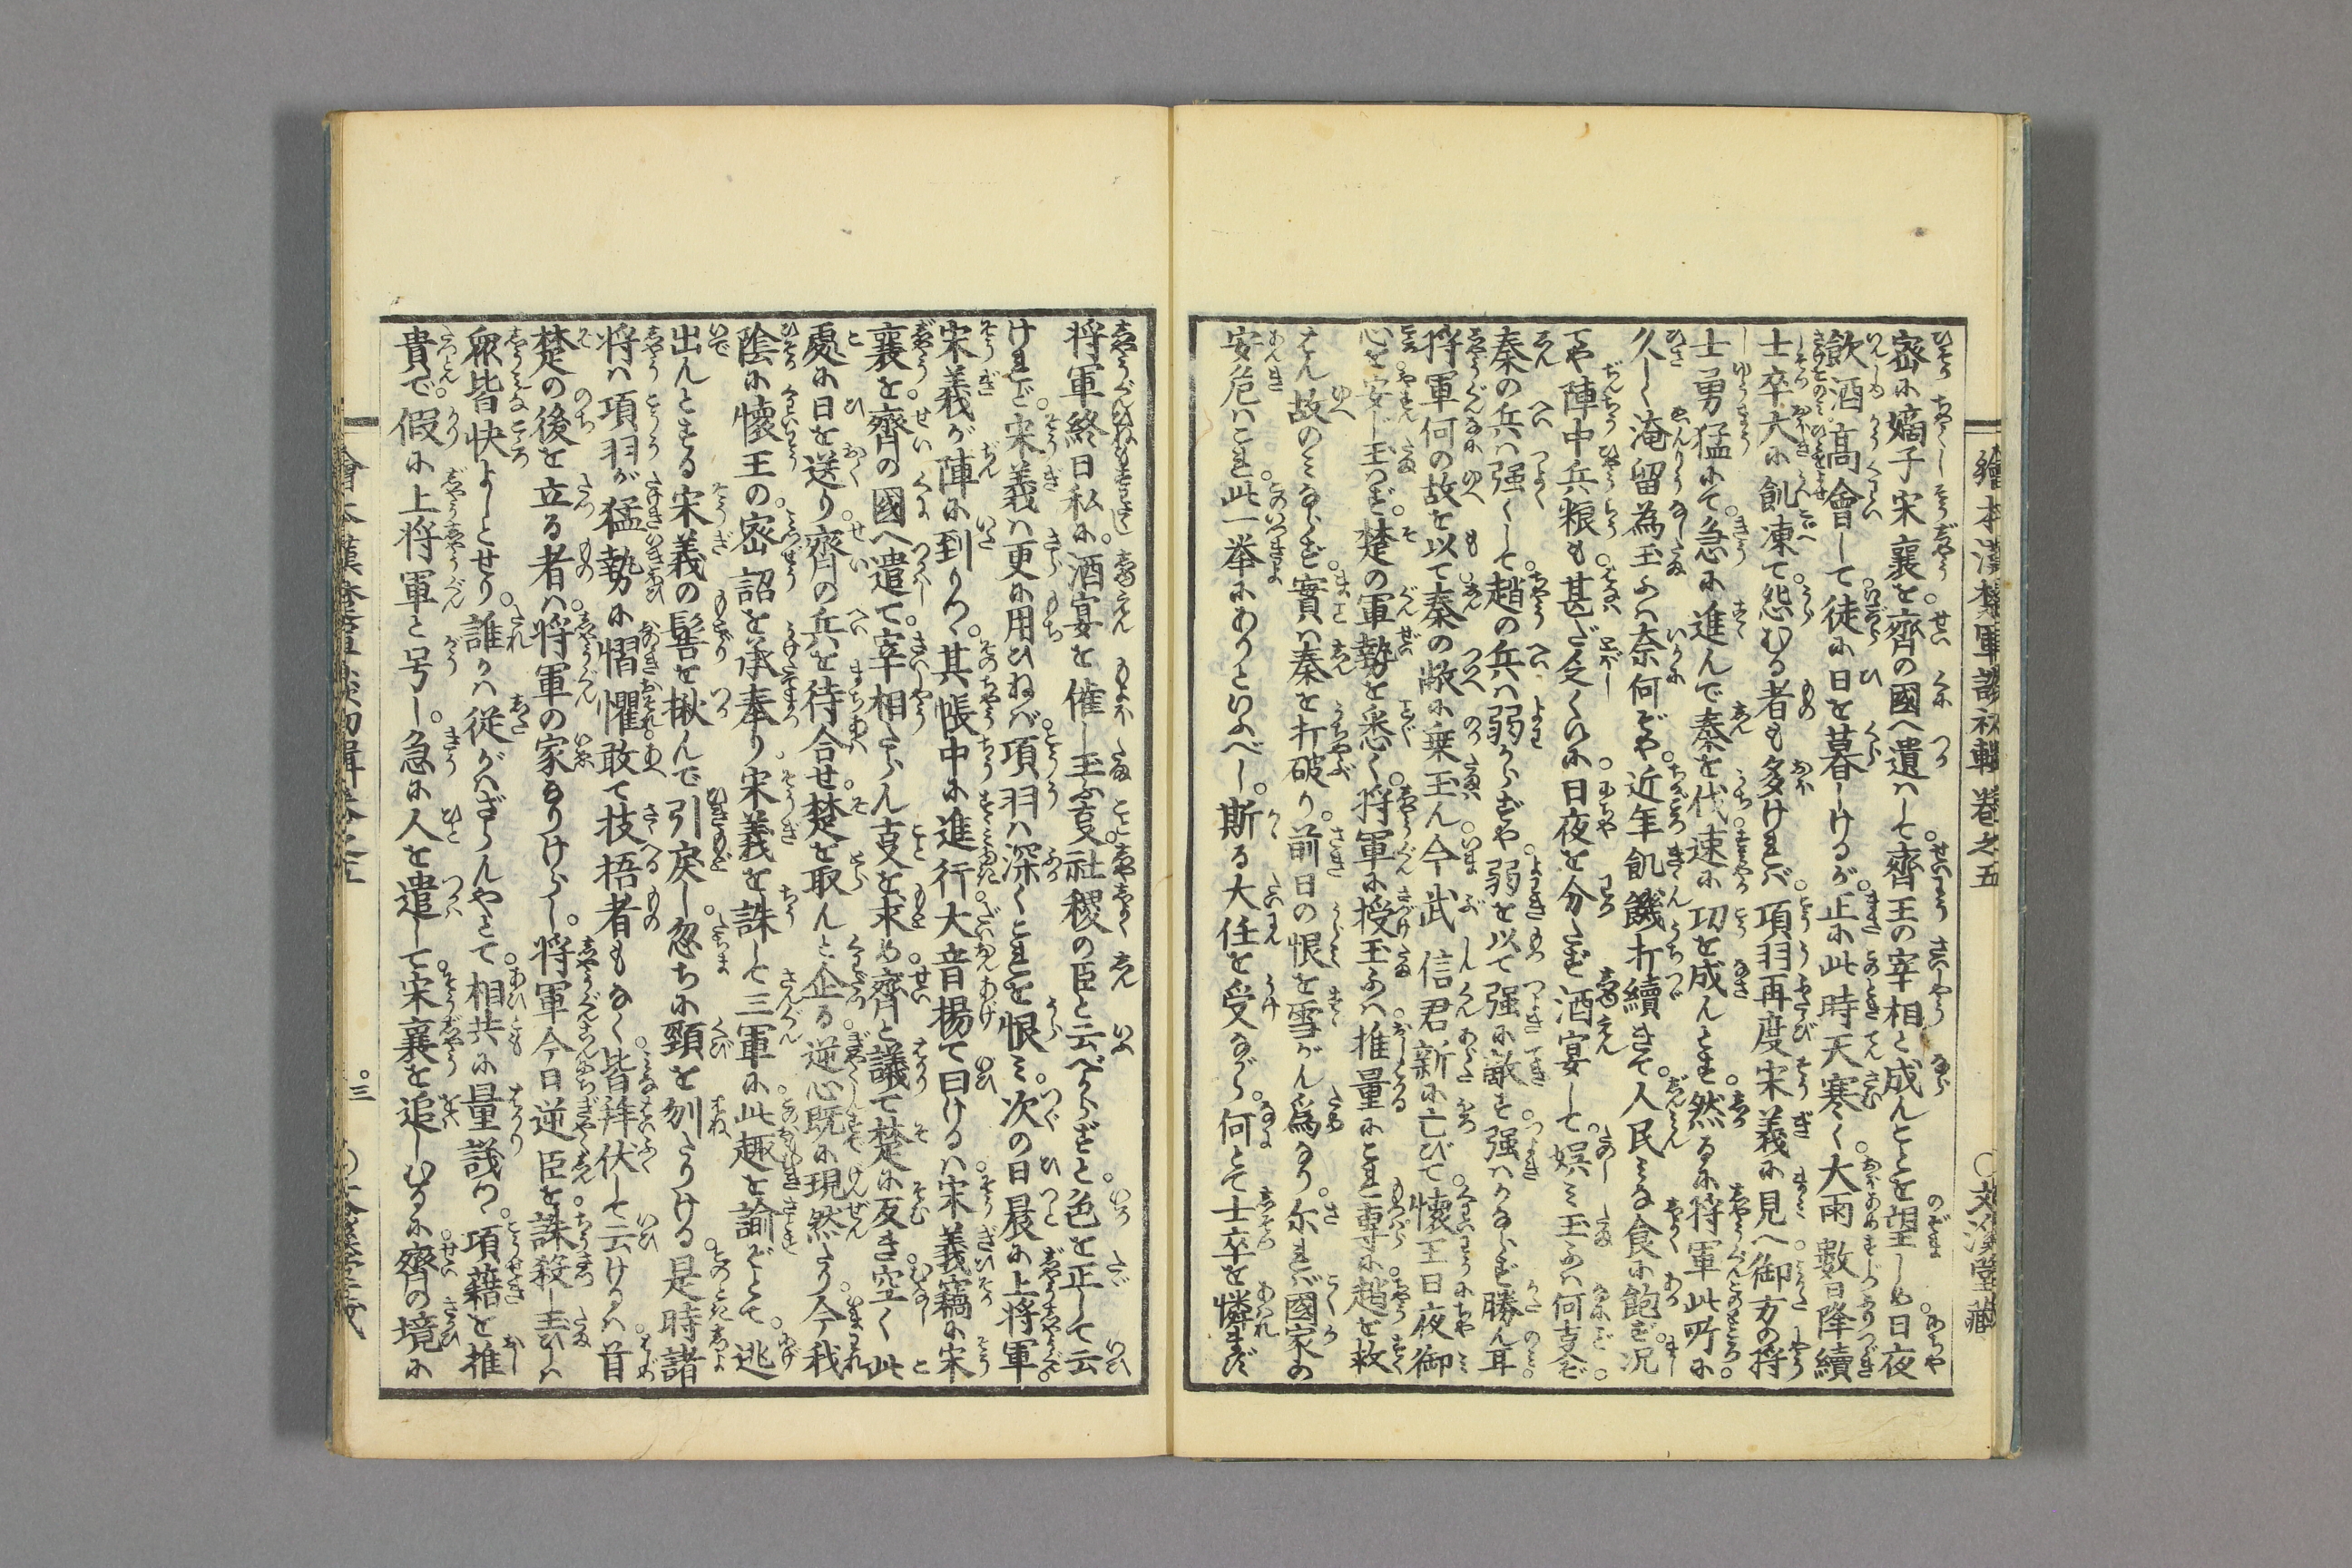 繪本漢楚軍談初輯卷之五
○文溪堂藏
密に嫡子宋襄を。齊の國へ遣はして。齊王の宰相と成んことを望しめ。日夜
飲酒高會して。徒に日を暮しけるが。正に此時天寒く。大雨數日降續
士卒大に飢凍て。怨むる者も多ければ。項羽再度宋義に見へ。御方の将
士勇猛にて。急に進んで秦を伐。速に功を成んとす。然るに将軍此所に。
久しく淹留為玉ふは奈何ぞや。近年飢饑打續きて。人民みな食に飽ず。况
てや陣中兵粮も。甚だ乏くいに。日夜を分たず酒宴して。娯み玉ふは何事ぞ。
秦の兵は强くして。趙の兵は弱からずや。弱を以て强に敵す。强はかならず勝ん耳。
将軍何の故を以て。秦の敝に乗玉ん。今武信君新に亡びて。懐王日夜御
心を安じ玉はず。楚の軍勢を悉く。将軍に授玉ふは。推量にこれ專に。趙を救
はん故のみならず。實は秦を打破り。前日の恨を雪がん爲なり。尓れば國家の
安危はこれ。此一挙にありといふべし。斯る大任を受ながら。何とて士卒を憐まず
将軍終日私に。酒宴を催し玉ふ事。社稷の臣と云べからずと。色を正して云
けれど。宋義は更に用ひねば。項羽は深くこれを恨み。次の日晨に上将軍。
宋義が陣に到りつ。其帳中に進行。大音揚て曰けるは。宋義竊に宋
襄を。齊の國へ遣て。宰相たらん事を求め。齊と議て楚に反き。空く此
處に日を送り。齊の兵を待合せ。楚を取んと企る。逆心既に現然たり。今我
陰に懐王の。密詔を承奉り。宋義を誅して三軍に。此趣を諭ぞとて。逃
出んとする宋義の。髻を掀んで引戻し。忽ちに頸を刎たりける。是時諸
将は項羽が猛勢に。慴懼敢て技梧者もなく。皆拜伏して云けるは。首
楚の後を立る者は。将軍の家なりけらし。将軍今日逆臣を。誅殺し玉ひしは
衆皆快よしとせり。誰かは從がはざらんやとて。相共に量議つ。項藉を推
貴で。假に上将軍と号し。急に人を遣して。宋襄を追しむるに。齊の境に
。三